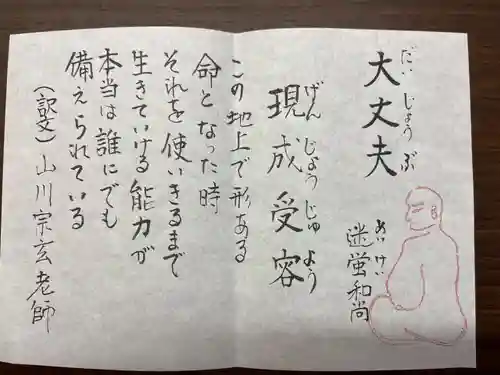 だいじょうぶ
大丈夫
めいけい
迷蛍和尚
げんじょうじゅよう
現成受容
この地上で形ある
命となった時
それを使いきるまで
生きていける能力が
本当は誰にでも
備えられている
(訳文)山川宗玄老師